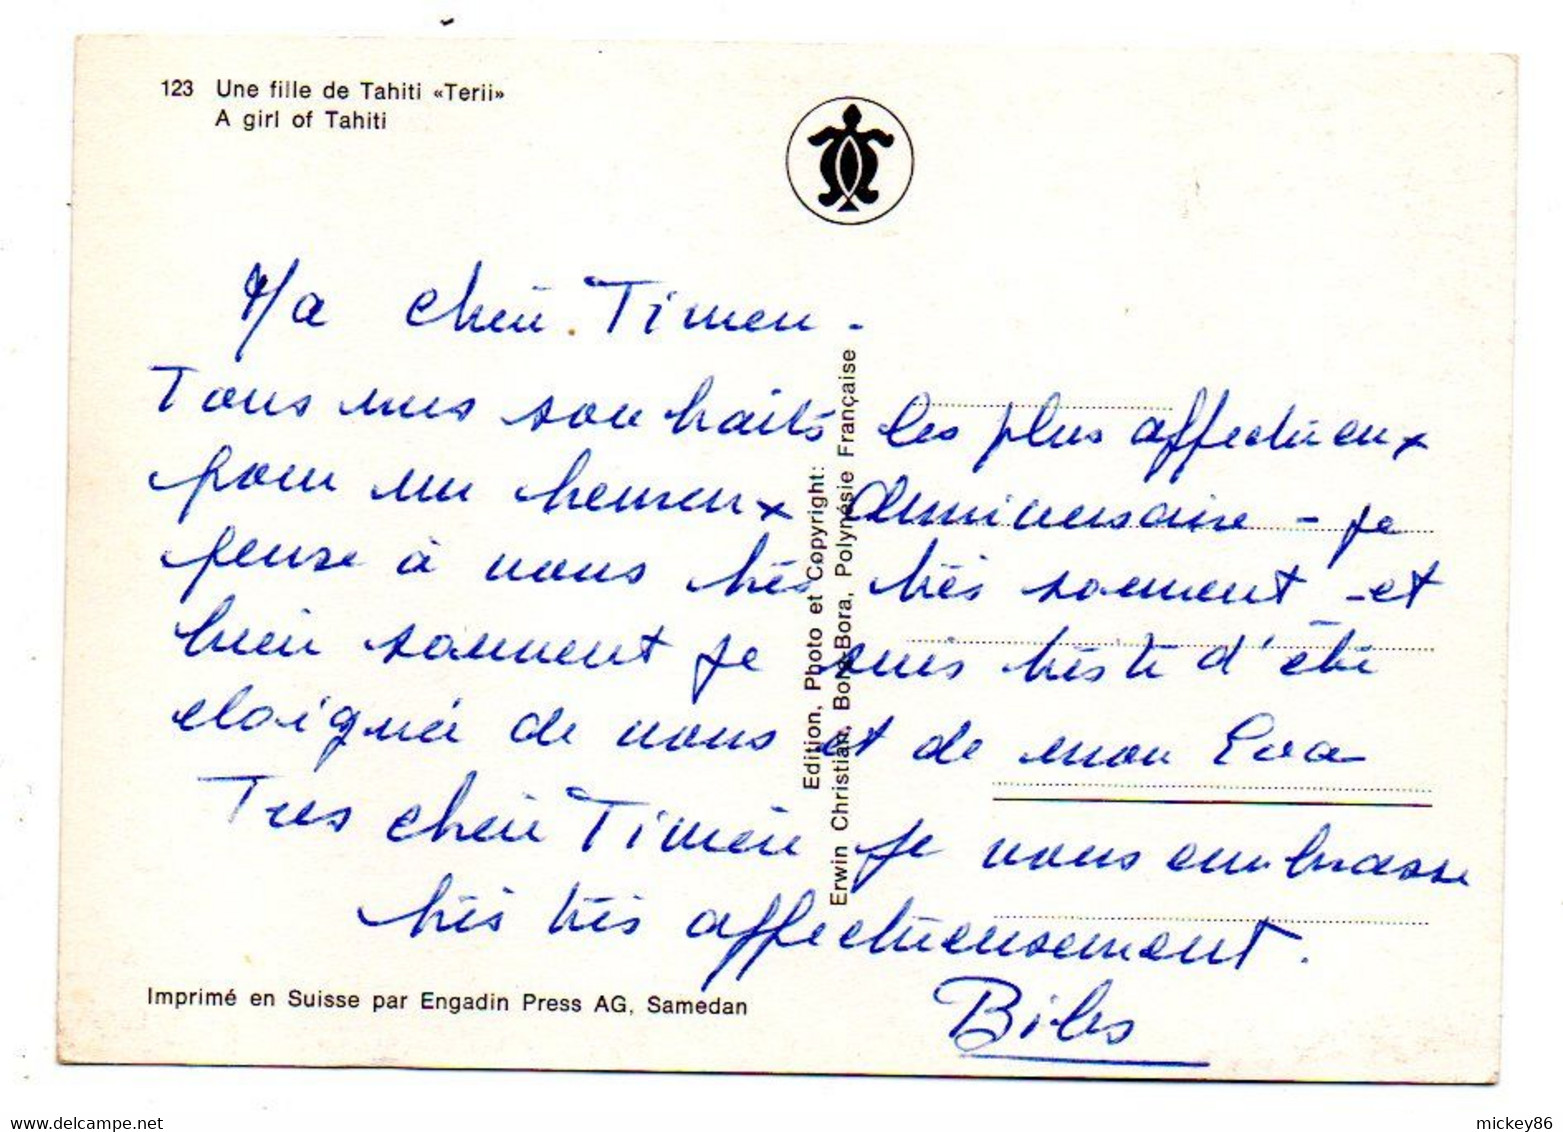 123 Une fille de Tahiti «Terii»
A girl of Tahiti
Ma chère Timen.
Tous mes souhaits les plus affectueux
pour un heureux anniversaire - je
pense à vous très très souvent - et
bien souvent je suis triste d'être
eloignée de vous et de mon Eva
Tres chère Timen je vous embrasse
très très affectueusement.
Bibs
Edition, Photo et Copyright:
Erwin Christian, Bora Bora, Polynésie Française
Imprimé en Suisse par Engadin Press AG, Samedan
mickey86
www.delcampe.net